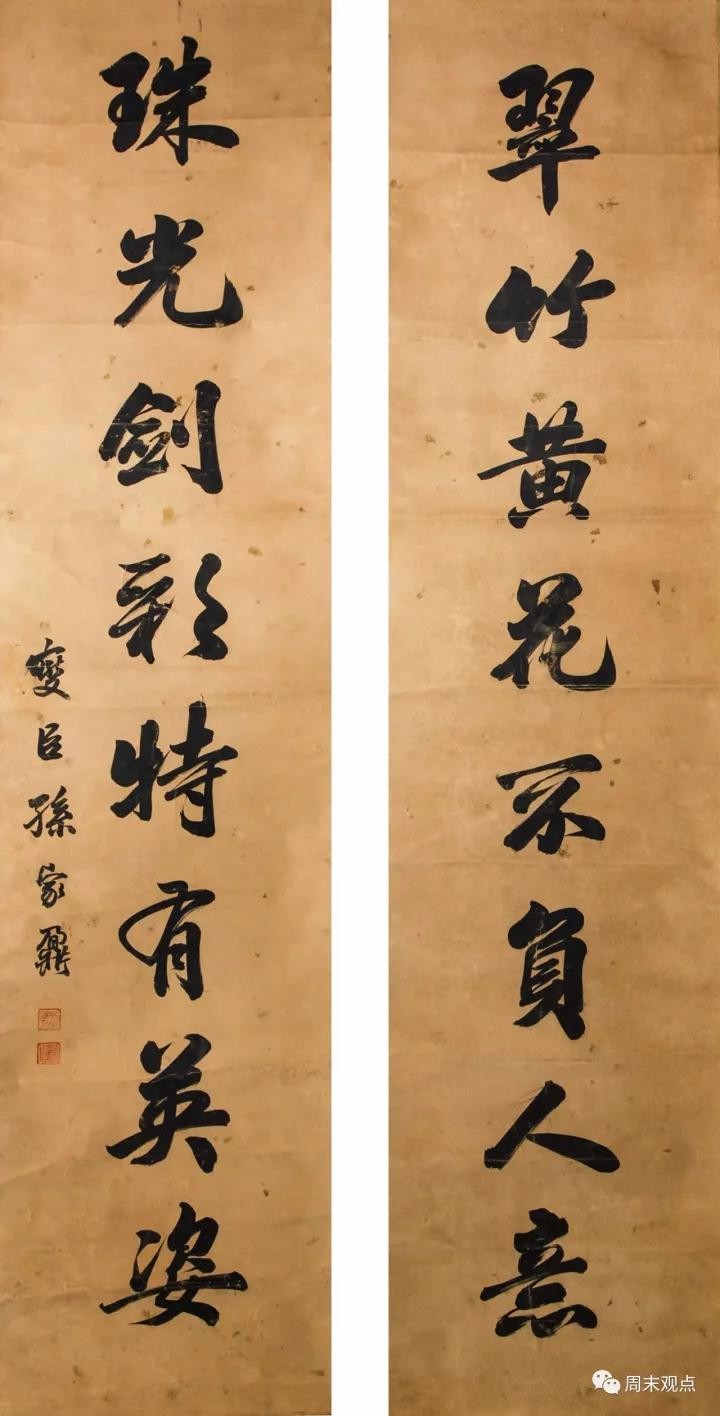 翠竹黄花不负人意
珠光剑彩特有英姿
燮臣孫家鼐
周末观点